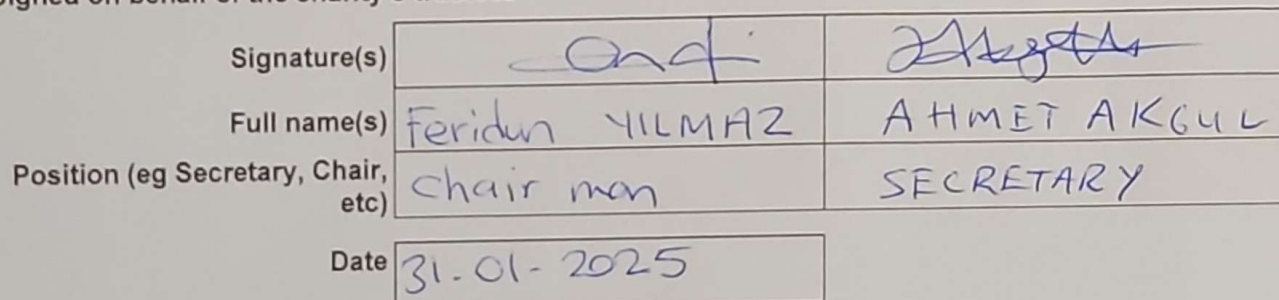 Signature(s)
Full name(s) Feridun YILMAZ AHMET AKGUL
Position (eg Secretary, Chair, etc) Chair man SECRETARY
Date 31-01-2025